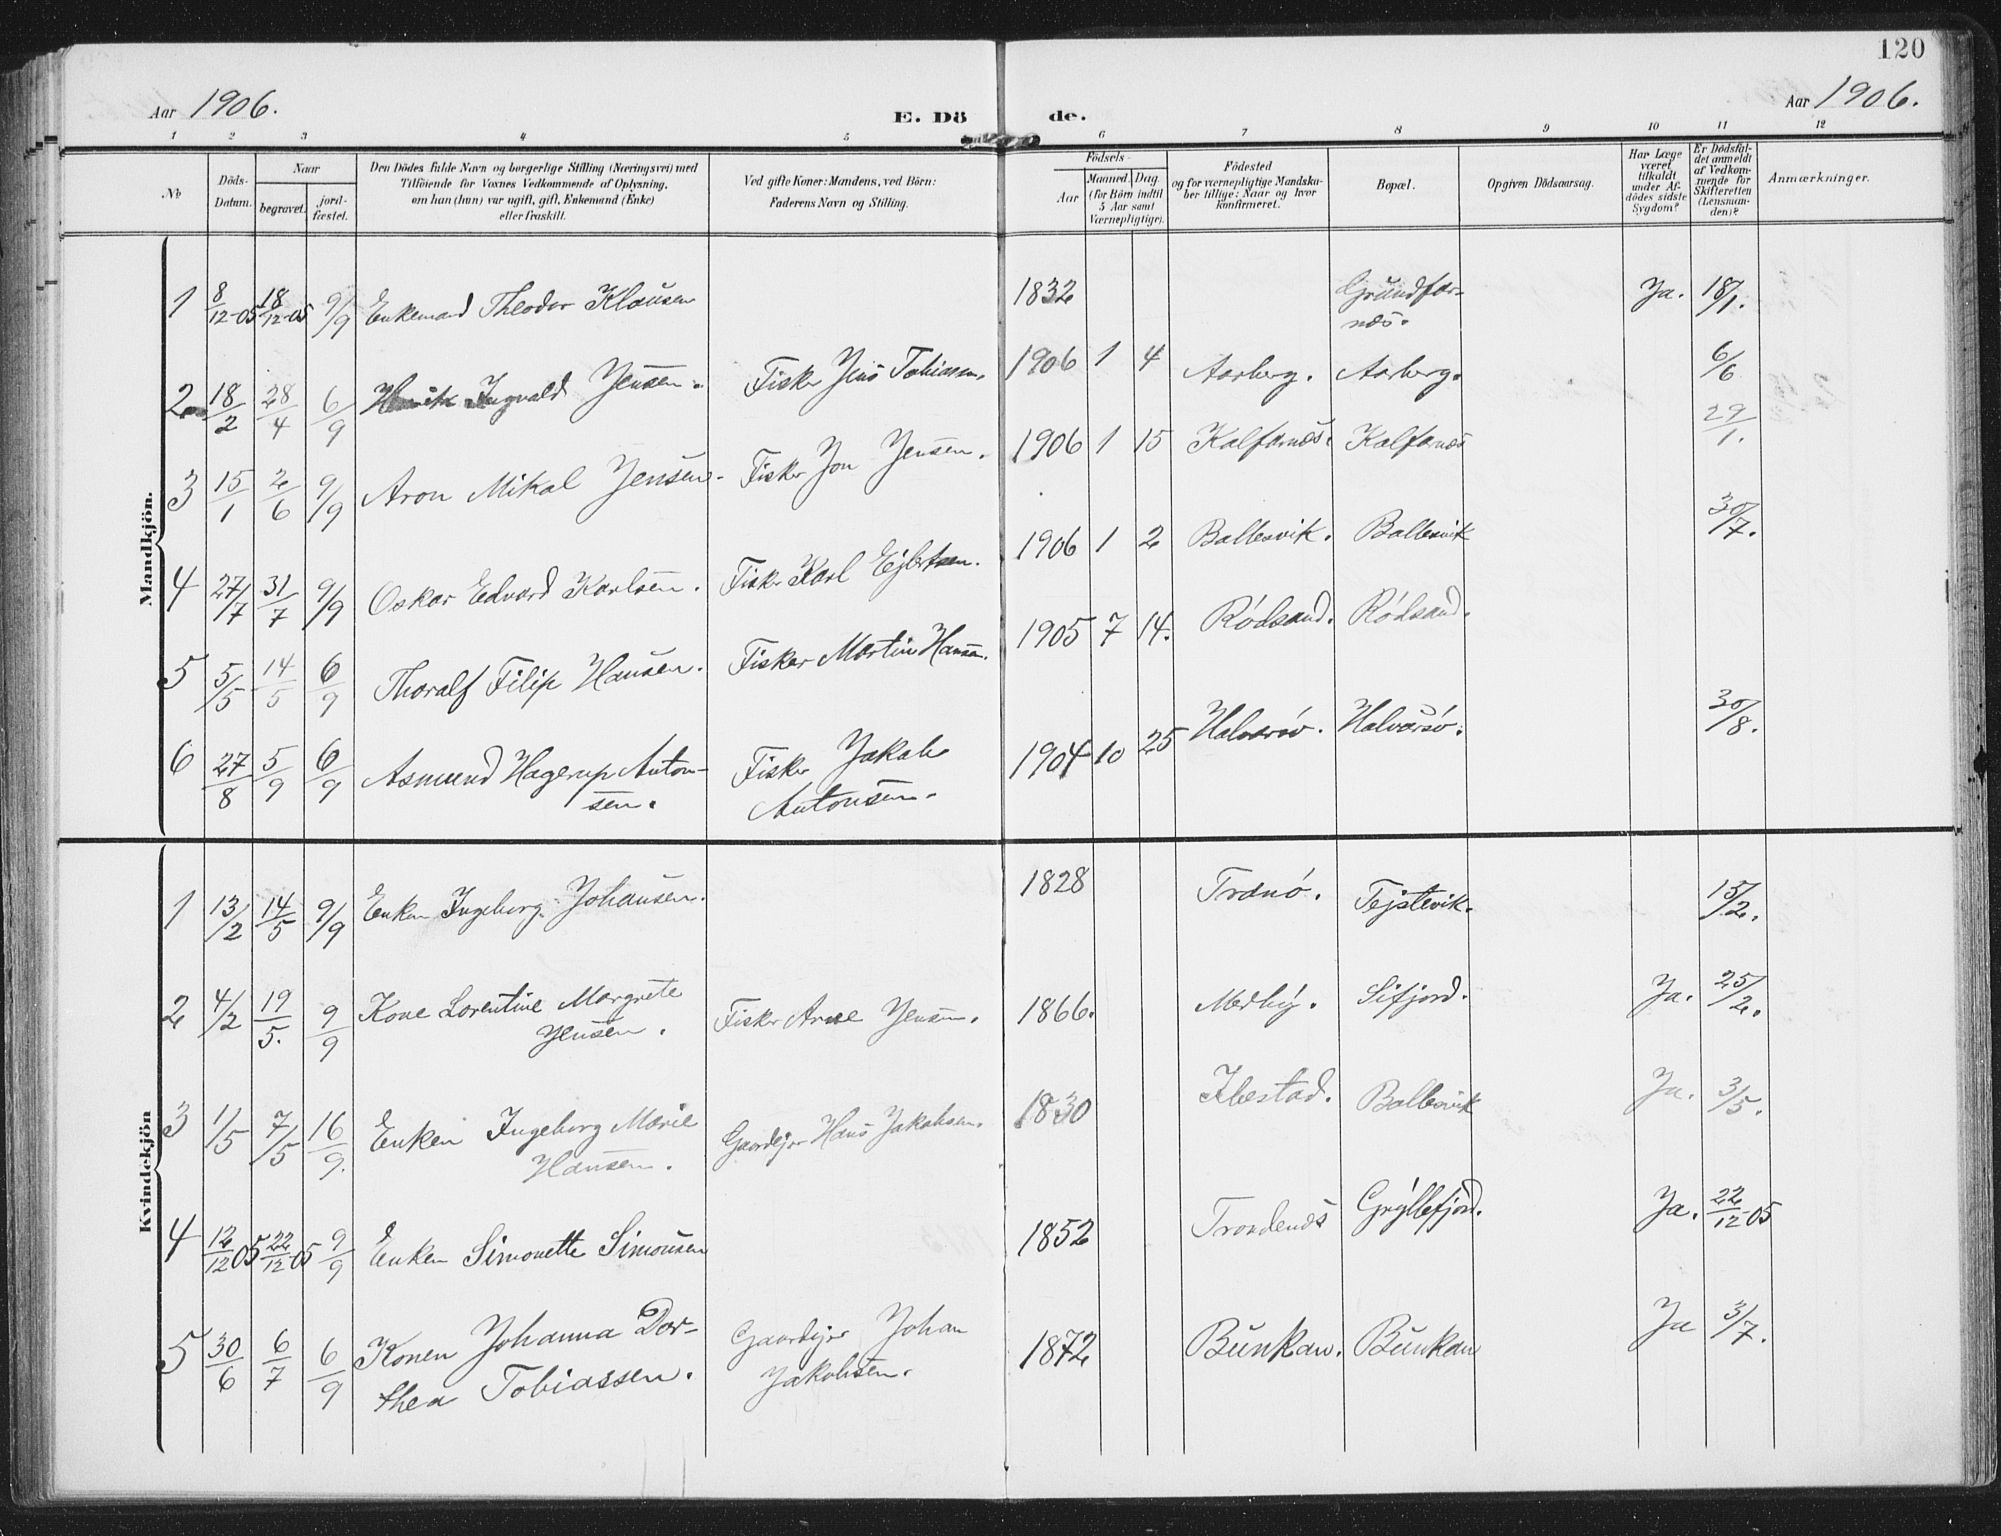 120
Aar 1906. E. Dö de. Aar 1906.
1 2 3 4 5 6 7 8 9 10 11 12
No
Döds-Datum.
Naar
begravet.
jord-fæstet.
Den Dödes fulde Navn og borgerlige Stilling (Næringsvei) med
Tilföiende for Voxnes Vedkommende af Oplysning,
om han (hun) var ugift, gift, Enkemand (Enke)
eller fraskilt.
Ved gifte Koner: Mandens, ved Börn:
Faderens Navn og Stilling.
Födsels-
Aar
Maaned. Dag.
(for Börn indtil
5 Aar samt
Værnepligtige).
Födested
og for værnepligtige Mandska-
ber tillige: Naar og hvor
konfirmeret.
Bopæl.
Opgiven Dödsaarsag.
Har Læge
været
tilkaldt
under Af-
dödes sidste
Sygdom?
Er Dödsfal-
det anmeldt
af Vedkom-
mende for
Skifteretten
(Lensman-
den)?
Anmærkninger.
Mandkjön.
1 8/12-05 18/12-05 9/9 Enkemand Theodor Klausen 1832 Grundfar-
næs. Ja. 18/1.
2 18/2 28/4 6/9 Henrik Ingvald Jensen. Fisker Jens Tobiassen. 1906 1 4 Aarberg. Aarberg. 6/6
3 15/1 2/6 9/9 Aron Mikal Jensen. Fisker Jon Jensen. 1906 1 15 Kalfarnes. Kalfarnes 29/1.
4 27/7 31/7 9/9 Oskar Edvard Karlsen. Fisker Karl Ejlertsen. 1906 1 2 Ballesvik. Ballesvik 30/7.
5 5/5 14/5 6/9 Thoralf Filip Hansen. Fisker Martin Hansen. 1905 7 14. Rødsand. Rødsand.
6 27/8 5/9 6/9 Asmund Hagerup Anton-
sen. Fisker Jakob
Antonsen. 1904 10 25 Halvarsø. Halvarsø. 30/8.
Kvindekjön
1 13/2 14/5 9/9 Enken Ingeborg Johansen. 1828 Tranø. Tejstevik. 15/2.
2 4/2 19/5. 9/9 Kone Lorentine Margrete
Jensen. Fisker Arne Jensen. 1866. Medby. Sifjord. Ja. 25/2.
3 1/5 7/5 16/9. Enken Ingeborg Marie
Hansen. Gaardejer Hans Jakobsen. 1830 Ibestad. Ballesvik Ja. 3/5.
4 12/12 05 22/12-05 9/9 Enken Simonette Simonsen 1852 Trondenes Gryllefjord. Ja. 22/12-05
5 30/6 6/7 6/9 Konen Johanna Dor-
thea Tobiassen. Gaardejer Johan
Jakobsen. 1872 Bunkan. Bunkan Ja 3/7.